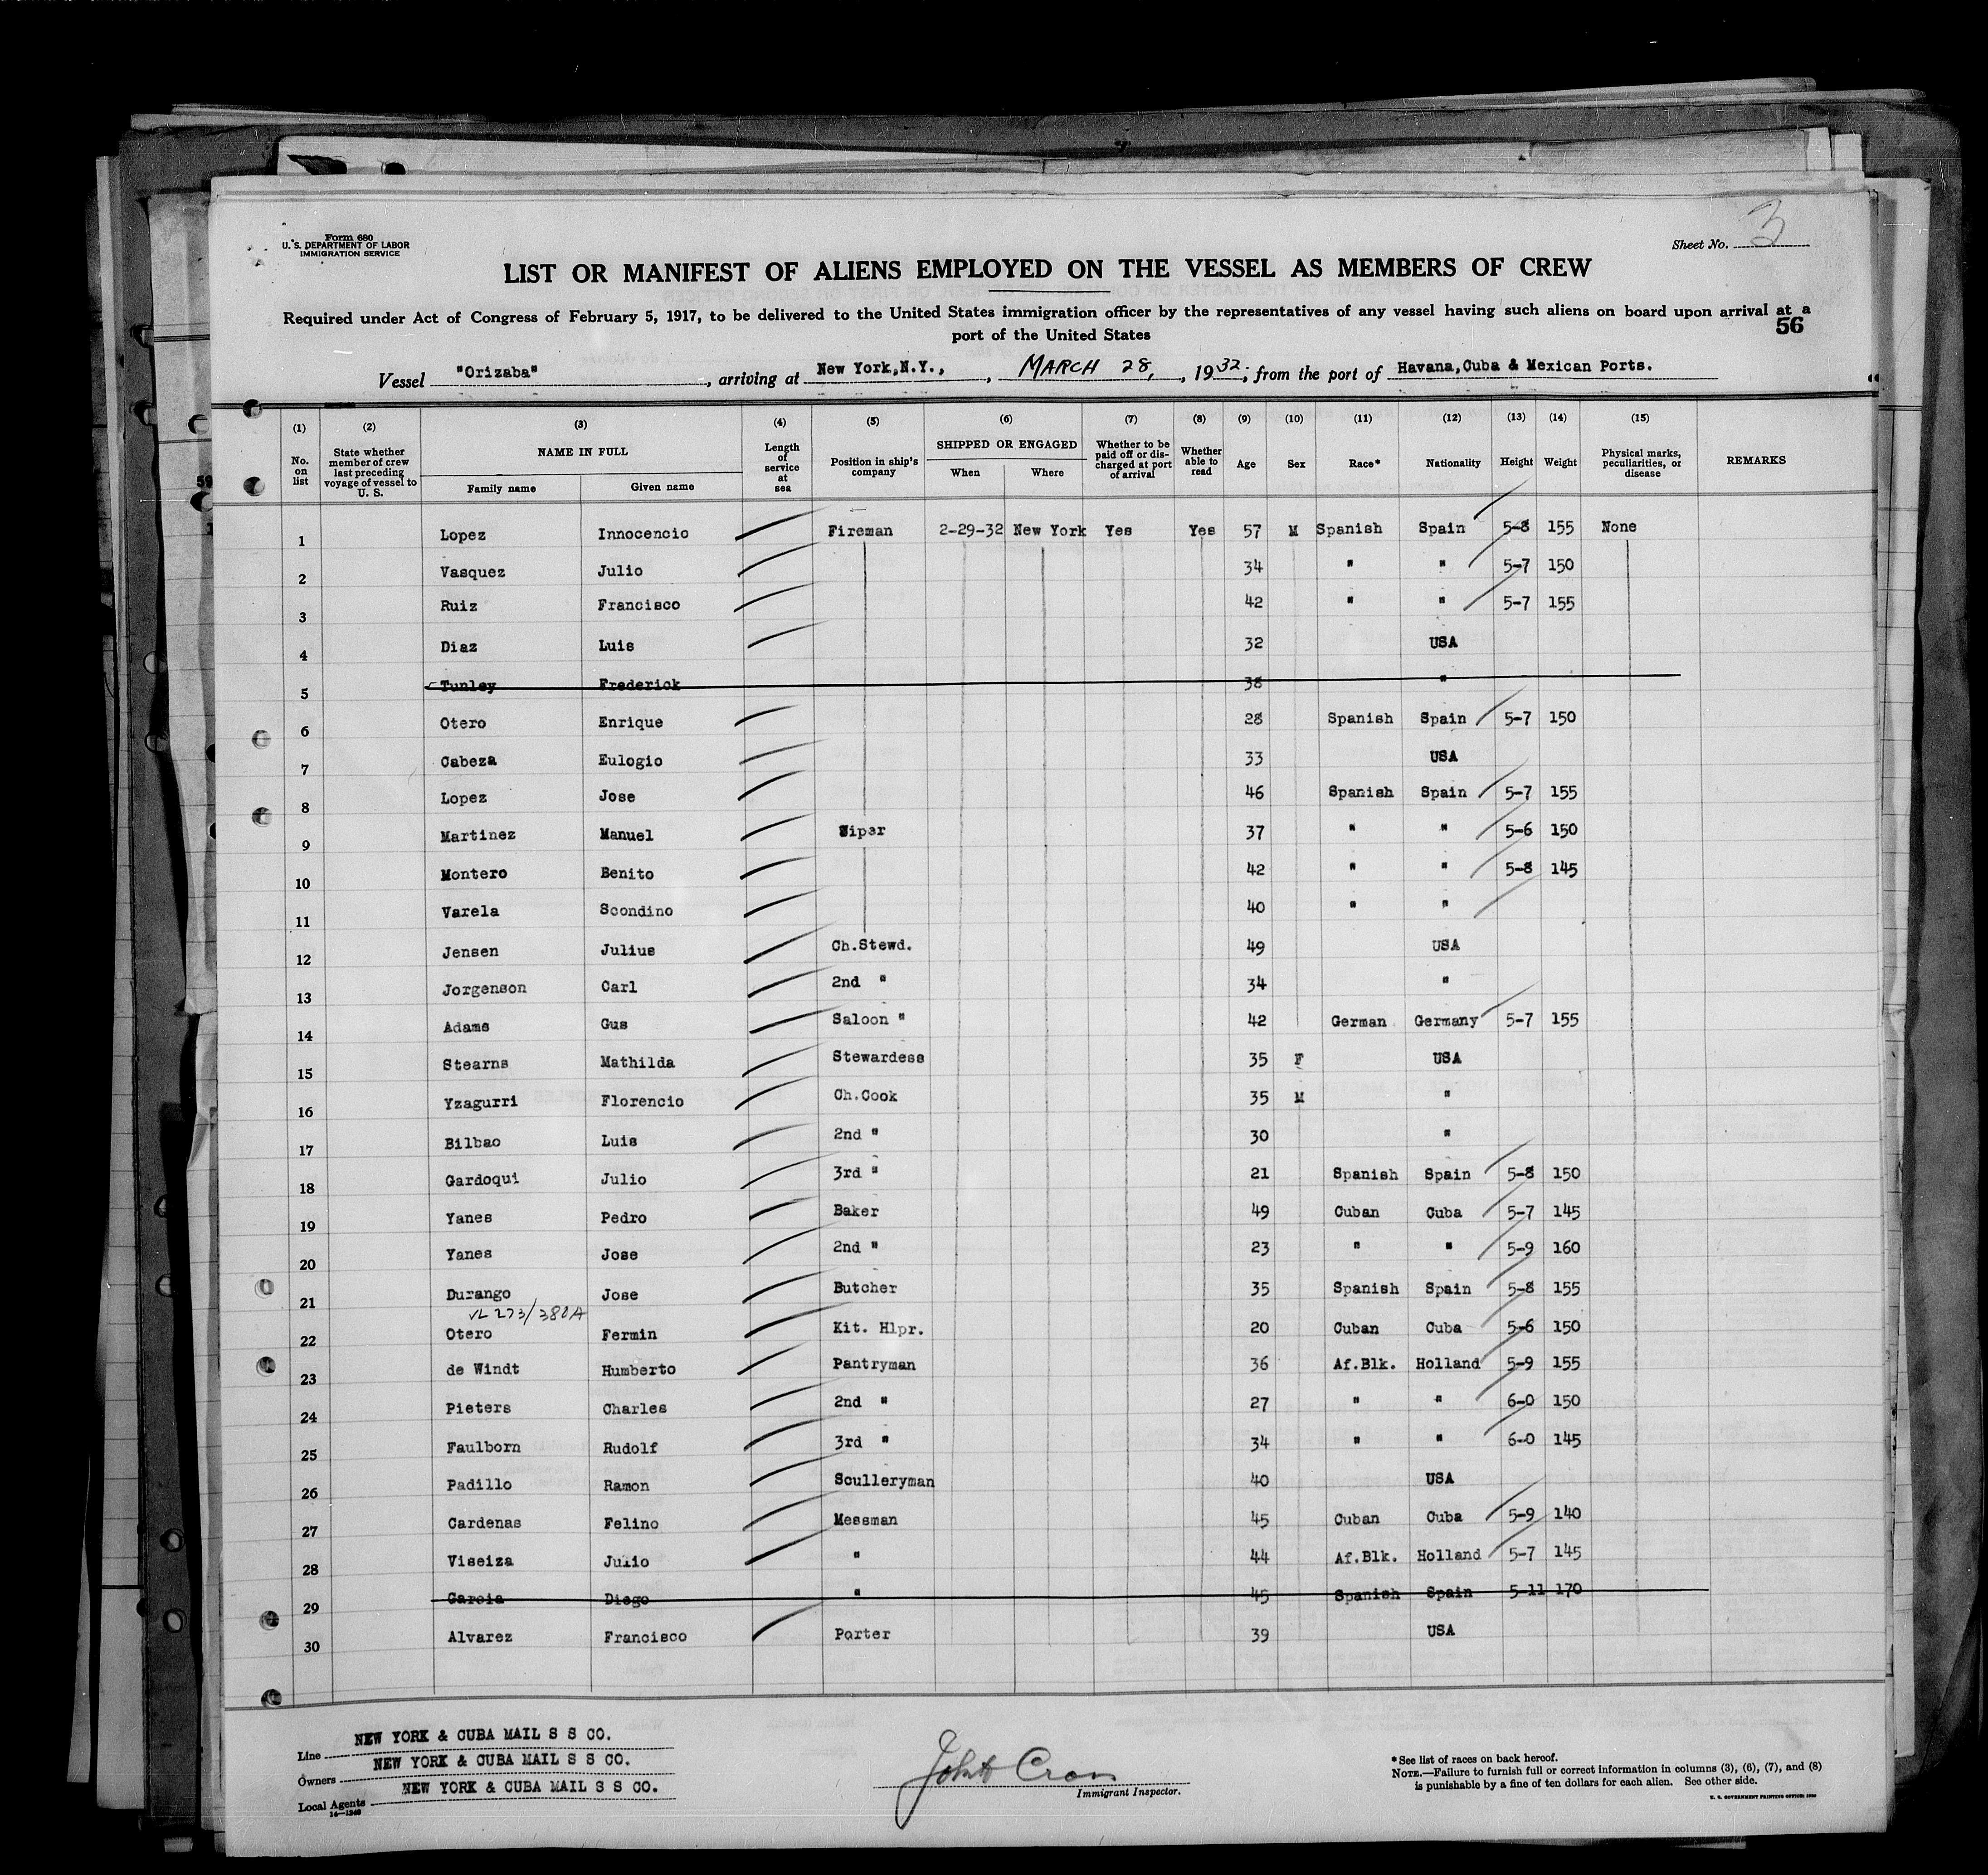 Form 680
U. S. DEPARTMENT OF LABOR
IMMIGRATION SERVICE
Sheet No. 3
LIST OR MANIFEST OF ALIENS EMPLOYED ON THE VESSEL AS MEMBERS OF CREW
Required under Act of Congress of February 5, 1917, to be delivered to the United States immigration officer by the representatives of any vessel having such aliens on board upon arrival at a
port of the United States
56
Vessel "Orizaba", arriving at New York,N.Y., , MARCH 28, , 1932; from the port of Havana,Cuba & Mexican Ports.
(1) (2) (3) (4) (5) (6) (7) (8) (9) (10) (11) (12) (13) (14) (15)
No. on list
State whether member of crew last preceding voyage of vessel to U. S.
NAME IN FULL
Family name Given name
Length of service at sea
Position in ship's company
SHIPPED OR ENGAGED
When Where
Whether to be paid off or discharged at port of arrival
Whether able to read
Age Sex Race* Nationality Height Weight
Physical marks, peculiarities, or disease
REMARKS
1 Lopez Innocencio Fireman 2-29-32 New York Yes Yes 57 M Spanish Spain 5-8 155 None
2 Vasquez Julio 34 " " 5-7 150
3 Ruiz Francisco 42 " " 5-7 155
4 Diaz Luis 32 USA
5 Tunley Frederick 38 "
6 Otero Enrique 28 Spanish Spain 5-7 150
7 Cabeza Eulogio 33 USA
8 Lopez Jose 46 Spanish Spain 5-7 155
9 Martinez Manuel Wiper 37 " " 5-6 150
10 Montero Benito 42 " " 5-8 145
11 Varela Scondino 40 " "
12 Jensen Julius Ch.Stewd. 49 USA
13 Jorgenson Carl 2nd " 34 "
14 Adams Gus Saloon " 42 German Germany 5-7 155
15 Stearns Mathilda Stewardess 35 F USA
16 Yzagurri Florencio Ch.Cook 35 M "
17 Bilbao Luis 2nd " 30 "
18 Gardoqui Julio 3rd " 21 Spanish Spain 5-8 150
19 Yanes Pedro Baker 49 Cuban Cuba 5-7 145
20 Yanes Jose 2nd " 23 " " 5-9 160
21 Durango Jose Butcher 35 Spanish Spain 5-8 155
VL 273/388A
22 Otero Fermin Kit. Hlpr. 20 Cuban Cuba 5-6 150
23 de Windt Humberto Pantryman 36 Af.Blk. Holland 5-9 155
24 Pieters Charles 2nd " 27 " " 6-0 150
25 Faulborn Rudolf 3rd " 34 " " 6-0 145
26 Padillo Ramon Sculleryman 40 USA
27 Cardenas Felino Messman 45 Cuban Cuba 5-9 140
28 Viseiza Julio " 44 Af.Blk. Holland 5-7 145
29 Garcia Diego " 45 Spanish Spain 5-11 170
30 Alvarez Francisco Porter 39 USA
Line NEW YORK & CUBA MAIL S S CO.
Owners NEW YORK & CUBA MAIL S S CO.
Local Agents NEW YORK & CUBA MAIL S S CO.
14—1240
John Cron
Immigrant Inspector.
*See list of races on back hereof.
NOTE.—Failure to furnish full or correct information in columns (3), (6), (7), and (8)
is punishable by a fine of ten dollars for each alien. See other side.